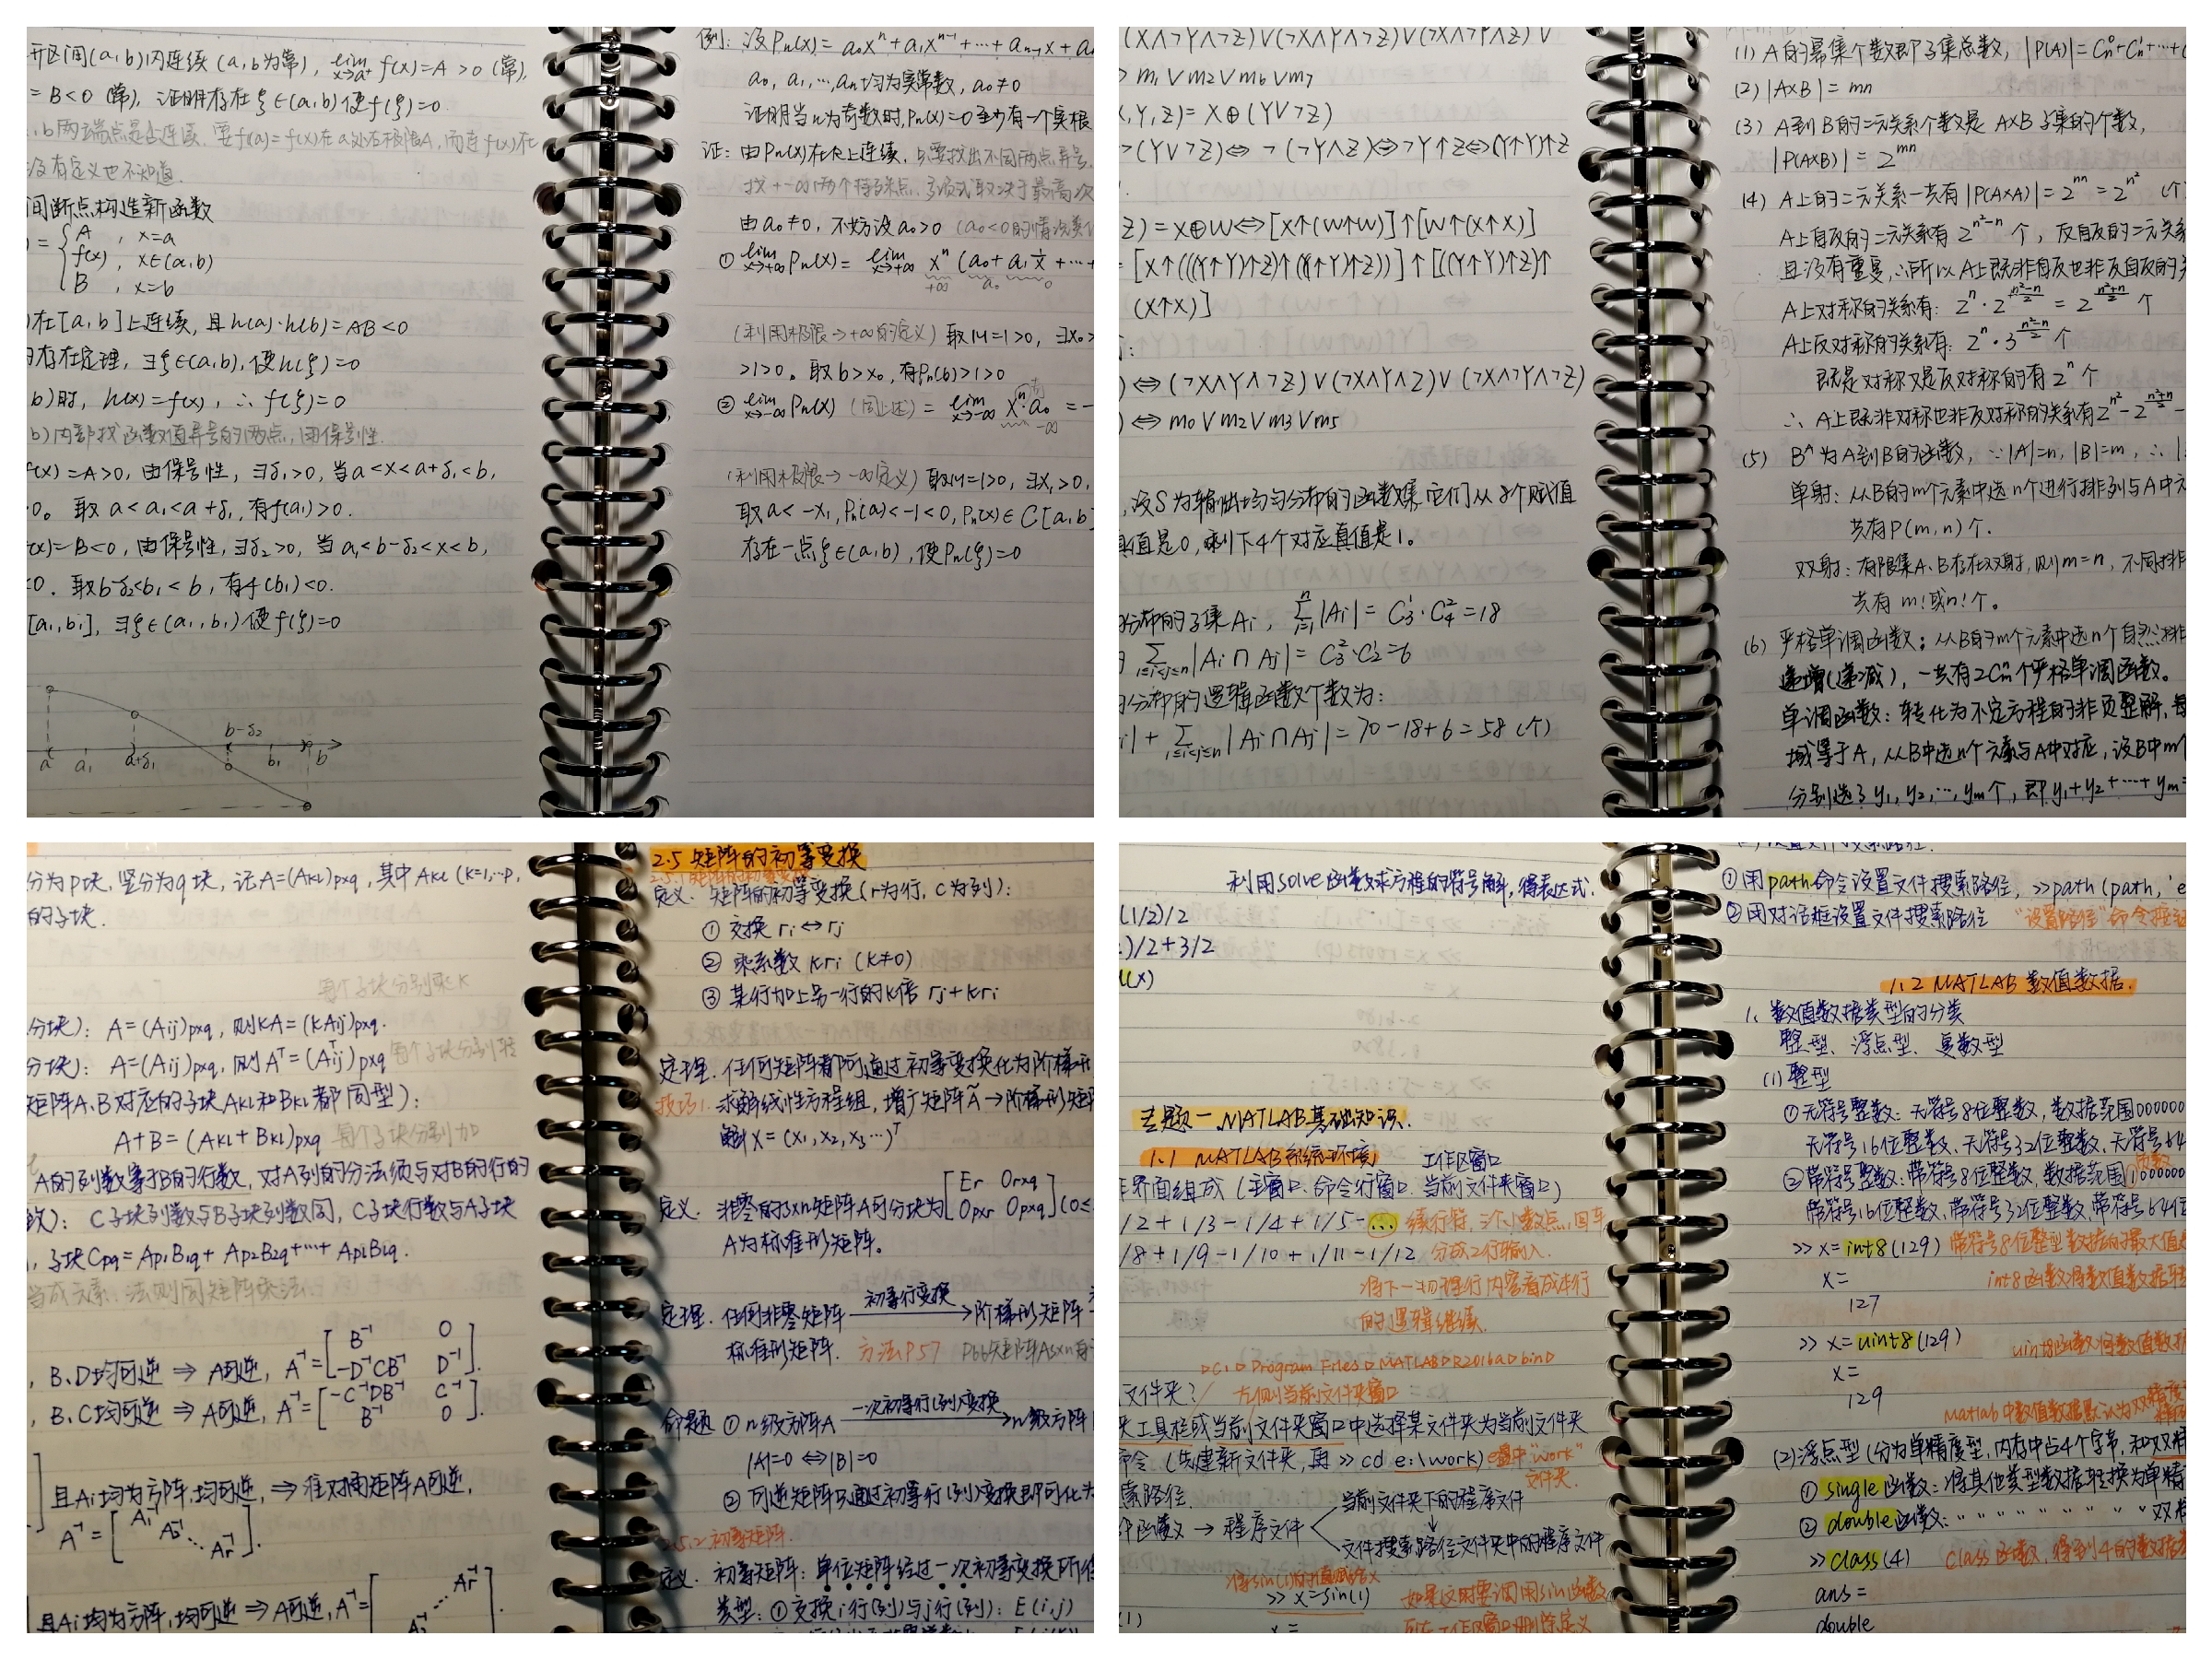 开区间(a,b)内连续(a,b为常), lim x→a⁺ f(x)=A>0 (常),
=B<0 (常), 证明存在ξ∈(a,b)使f(ξ)=0
,b两端点是否连续, 要f(a)=f(x)在a处右极限A, 而连f(x)在
没有定义也不知道.
间断点构造新函数
)={A , x=a
f(x) , x∈(a,b)
B , x=b
)在[a,b]上连续, 且h(a)·h(b)=AB<0
存在定理, ∃ξ∈(a,b), 使h(ξ)=0
b)时, h(x)=f(x), ∴f(ξ)=0
b)内部找函数值异号的两点, 用保号性.
f(x)=A>0, 由保号性, ∃δ₁>0, 当a<x<a+δ₁<b,
0。取a<a₁<a+δ₁, 有f(a₁)>0.
(x)=B<0, 由保号性, ∃δ₂>0, 当a₁<b-δ₂<x<b,
<0. 取b-δ₂<b₁<b, 有f(b₁)<0.
[a₁,b₁], ∃ξ∈(a₁,b₁)使f(ξ)=0
b-δ₂
a a₁ a+δ₁ 0 b₁ b
例: 设Pn(x)=a₀xⁿ+a₁xⁿ⁻¹+…+an-1x+a
a₀, a₁,…,an均为实常数, a₀≠0
证明当n为奇数时, Pn(x)=0至少有一个实根
证: 由Pn(x)在R上连续, 只要找出不同两点异号,
找+-∞两个特殊点, 多项式取决于最高次
由a₀≠0, 不妨设a₀>0 (a₀<0的情况类似
① lim x→+∞ Pn(x)= lim x→+∞ xⁿ(a₀+a₁1/x+…+
+∞ a₀ 0
(利用极限→+∞的定义) 取M=1>0, ∃x₀>
>1>0。取b>x₀, 有Pn(b)>1>0
② lim x→-∞ Pn(x) (同上述) = lim x→-∞ xⁿ·a₀ = -
-∞
(利用极限→-∞定义) 取M=1>0, ∃x₁>0,
取a<-x₁, Pn(a)<-1<0, Pn(x)∈C[a,b]
存在一点ξ∈(a,b), 使Pn(ξ)=0
(X∧¬Y∧¬Z)∨(¬X∧Y∧¬Z)∨(¬X∧¬Y∧¬Z)∨
> m₁∨m₂∨m₆∨m₇
(,Y,Z)=X⊕(Y∨¬Z)
¬(Y∨¬Z)⇔¬(¬Y∧Z)⇔¬Y↑Z⇔(Y↑Y)↑Z
Z)=X⊕W⇔[X↑(W↑W)]↑[W↑(X↑X)]
=[X↑(((Y↑Y)↑Z)↑((Y↑Y)↑Z))]↑[((Y↑Y)↑Z)↑
(X↑X)]
)⇔(¬X∧Y∧¬Z)∨(¬X∧Y∧Z)∨(¬X∧¬Y∧¬Z)
)⇔m₀∨m₂∨m₃∨m₅
,设S为输出均匀分布的函数集,它们从8个赋值
真值是0, 剩下4个对应真值是1。
分布的子集Ai, Σ i=1 n |Ai|=C₃¹·C₄²=18
Σ 1≤i<j≤n |Ai∩Aj|=C₃²·C₂¹=6
分布的逻辑函数个数为:
i|+Σ 1≤i<j≤n |Ai∩Aj|=70-18+6=58 (个)
(1) A的幂集个数即子集总数, |P(A)|=Cn⁰+Cn¹+…+
(2) |A×B|=mn
(3) A到B的二元关系个数是A×B子集的个数,
|P(A×B)|=2^mn
(4) A上的二元关系一共有|P(A×A)|=2^nn=2^n² (个
A上自反的二元关系有2^(n²-n)个, 反自反的二元关系
且没有重复, ∴所以A上既非自反也非反自反的关
A上对称的关系有: 2ⁿ·2^((n²-n)/2)=2^((n²+n)/2)个
A上反对称的关系有: 2ⁿ·3^((n²-n)/2)个
既是对称又是反对称的有2ⁿ个
∴A上既非对称也非反对称的关系有2^n²-2^((n²+n)/2)-
(5) B^A为A到B的函数, ∵|A|=n, |B|=m, ∴|
单射: 从B的m个元素中选n个进行排列与A中元
共有P(m,n)个.
双射: 有限集A、B存在双射, 则m=n, 不同排
共有m!或n!个。
(6) 严格单调函数: 从B的m个元素中选n个自然排
递增(递减), 一共有2Cmⁿ个严格单调函数。
单调函数: 转化为不定方程的非负整解, 每
域等于A, 从B中选n个元素与A中对应, 设B中m个
分别选了y₁, y₂, …, ym个, 即y₁+y₂+…+ym=
分为p块, 竖分为q块, 记A=(AKL)p×q, 其中AKL(K=1,…p,
的子块.
每个子块分别乘K
分块): A=(Aij)p×q, 则KA=(KAij)p×q.
分块): A=(Aij)p×q, 则Aᵀ=(Aijᵀ)p×q 每个子块分别转
矩阵A、B对应的子块AKL和BKL都同型):
A+B=(AKL+BKL)p×q 每个子块分别加
A的列数等于B的行数, 对A列的分法须与对B的行的
致): C子块列数与B子块列数同, C子块行数与A子块
, 子块Cpq=Ap₁B₁q+Ap₂B₂q+…+ApLBLq.
当成元素, 法则同矩阵乘法
, B、D均可逆⇒A可逆, A⁻¹=[B⁻¹ 0
-D⁻¹CB⁻¹ D⁻¹].
, B、C均可逆⇒A可逆, A⁻¹=[-C⁻¹DB⁻¹ C⁻¹
B⁻¹ 0].
且Ai均为方阵, 均可逆, ⇒准对角矩阵A可逆,
A⁻¹=[A₁⁻¹ A₂⁻¹ ⋱ Ar⁻¹].
且Ai均为方阵, 均可逆⇒A可逆, A⁻¹=[ Ar⁻¹
2.5 矩阵的初等变换
定义. 矩阵的初等变换(r为行, C为列):
① 交换 ri↔rj
② 乘系数 kri (k≠0)
③ 某行加上另一行的k倍 rj+kri
定理. 任何矩阵都可通过初等变换化为阶梯形
技巧1. 求解线性方程组, 增广矩阵Ã→阶梯形矩阵
解X=(x₁,x₂,x₃…)ᵀ
定义. 非零的s×n矩阵A可分块为[Er Or×q
Op×r Op×q](0≤
A为标准形矩阵。
定理. 任何非零矩阵 初等行变换→阶梯形矩阵
标准形矩阵. 方法P57 P66矩阵As×n
命题 ① n级方阵A 一次初等行(列)变换→n级方阵
|A|=0⇔|B|=0
② 可逆矩阵只通过初等行(列)变换即可化为
2.5.2 初等矩阵.
定义. 初等矩阵: 单位矩阵经过一次初等变换所
类型: ①交换i行(列)与j行(列): E(i,j)
利用solve函数求方程的符号解, 得表达式.
(1/2)/2
)/2+3/2
(x)
专题一 MATLAB基础知识.
1.1 MATLAB系统环境
工作区窗口
界面组成 (主窗口、命令行窗口、当前文件夹窗口)
/2+1/3-1/4+1/5-... 续行符, 三个小数点, 回车
/8+1/9-1/10+1/11-1/12 分成2行输入.
将下一物理行内容看成本行
的逻辑继续.
▷C:▷Program Files▷MATLAB▷R2016a▷bin▷
文件夹? 左侧当前文件夹窗口
夹工具栏或当前文件夹窗口中选择某文件夹为当前文件夹
命令 (先建新文件夹, 再>>cd e:\work) e盘中"work"
文件夹.
索路径.
件函数→程序文件
当前文件夹下的程序文件
文件搜索路径文件夹中的程序文件
将sin(1)的值赋给x
>> x=sin(1) 如果这时要调用sin函数
可在工作区窗口删除定义
x=
①用path命令设置文件搜索路径, >>path(path,'e
②用对话框设置文件搜索路径 "设置路径"命令按
1.2 MATLAB 数值数据.
1. 数值数据类型的分类
整型、浮点型、复数型
(1)整型
①无符号整数: 无符号8位整数, 数据范围000000
无符号16位整数、无符号32位整数、无符号64
②带符号整数: 带符号8位整数, 数据范围1000000
带符号16位整数、带符号32位整数、带符号64位
>> x=int8(129) 带符号8位整型数据的最大值
x= int8函数将数值数据转
127
>> x=uint8(129) uint8函数将数值数据
x=
129
Matlab中数值数据默认为双精度
(2)浮点型(分为单精度型, 内存中占4个字节, 和双精
①single函数: 将其他类型数据转换为单精
②double函数: 〃 〃 〃 〃 〃 〃 双精
>> class(4) class函数, 得到4的数据类
ans=
double